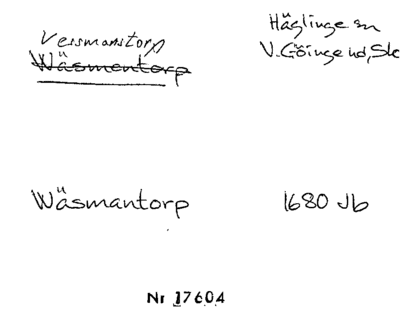 Vessmanstorp
Wäsmentorp
Häglinge sn
V. Göinge hd, Sk
Wäsmantorp
1680 Jb
Nr 17604